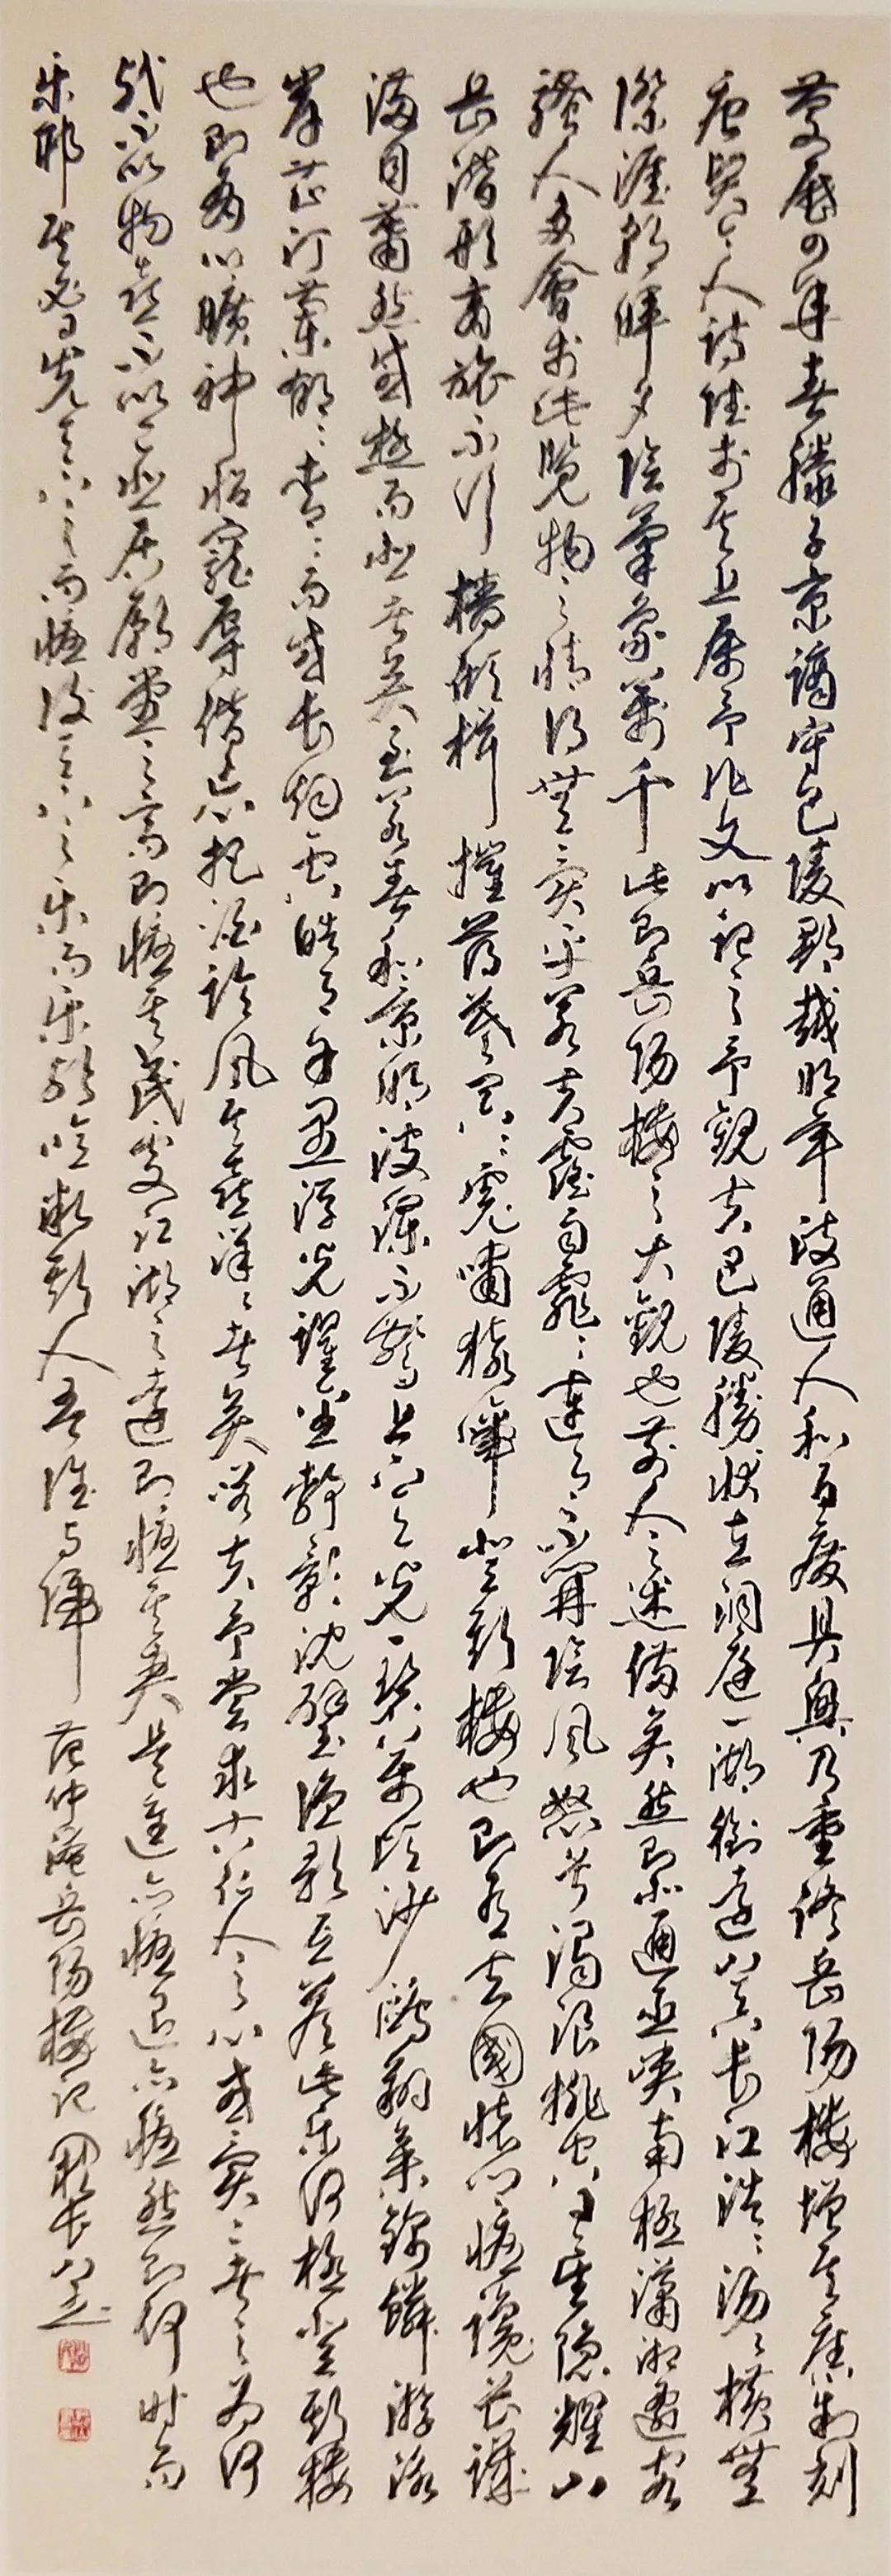 慶曆四年春滕子京謫守巴陵郡越明年政通人和百廢具興乃重修岳陽樓增其舊制刻
唐賢今人詩賦於其上屬予作文以記之予觀夫巴陵勝狀在洞庭一湖銜遠山吞長江浩浩湯湯橫無
際涯朝暉夕陰氣象萬千此則岳陽樓之大觀也前人之述備矣然則北通巫峽南極瀟湘遷客
騷人多會於此覽物之情得無異乎若夫霪雨霏霏連月不開陰風怒號濁浪排空日星隱耀山
岳潛形商旅不行檣傾楫摧薄暮冥冥虎嘯猿啼登斯樓也則有去國懷鄉憂讒畏譏
滿目蕭然感極而悲者矣至若春和景明波瀾不驚上下天光一碧萬頃沙鷗翔集錦鱗游泳
岸芷汀蘭郁郁青青而或長煙一空皓月千里浮光躍金靜影沈璧漁歌互答此樂何極登斯樓
也則有心曠神怡寵辱偕忘把酒臨風其喜洋洋者矣嗟夫予嘗求古仁人之心或異二者之為何
哉不以物喜不以己悲居廟堂之高則憂其民處江湖之遠則憂其君是進亦憂退亦憂然則何時而
樂耶其必曰先天下之憂而憂後天下之樂而樂歟噫微斯人吾誰與歸 范仲淹岳陽樓記